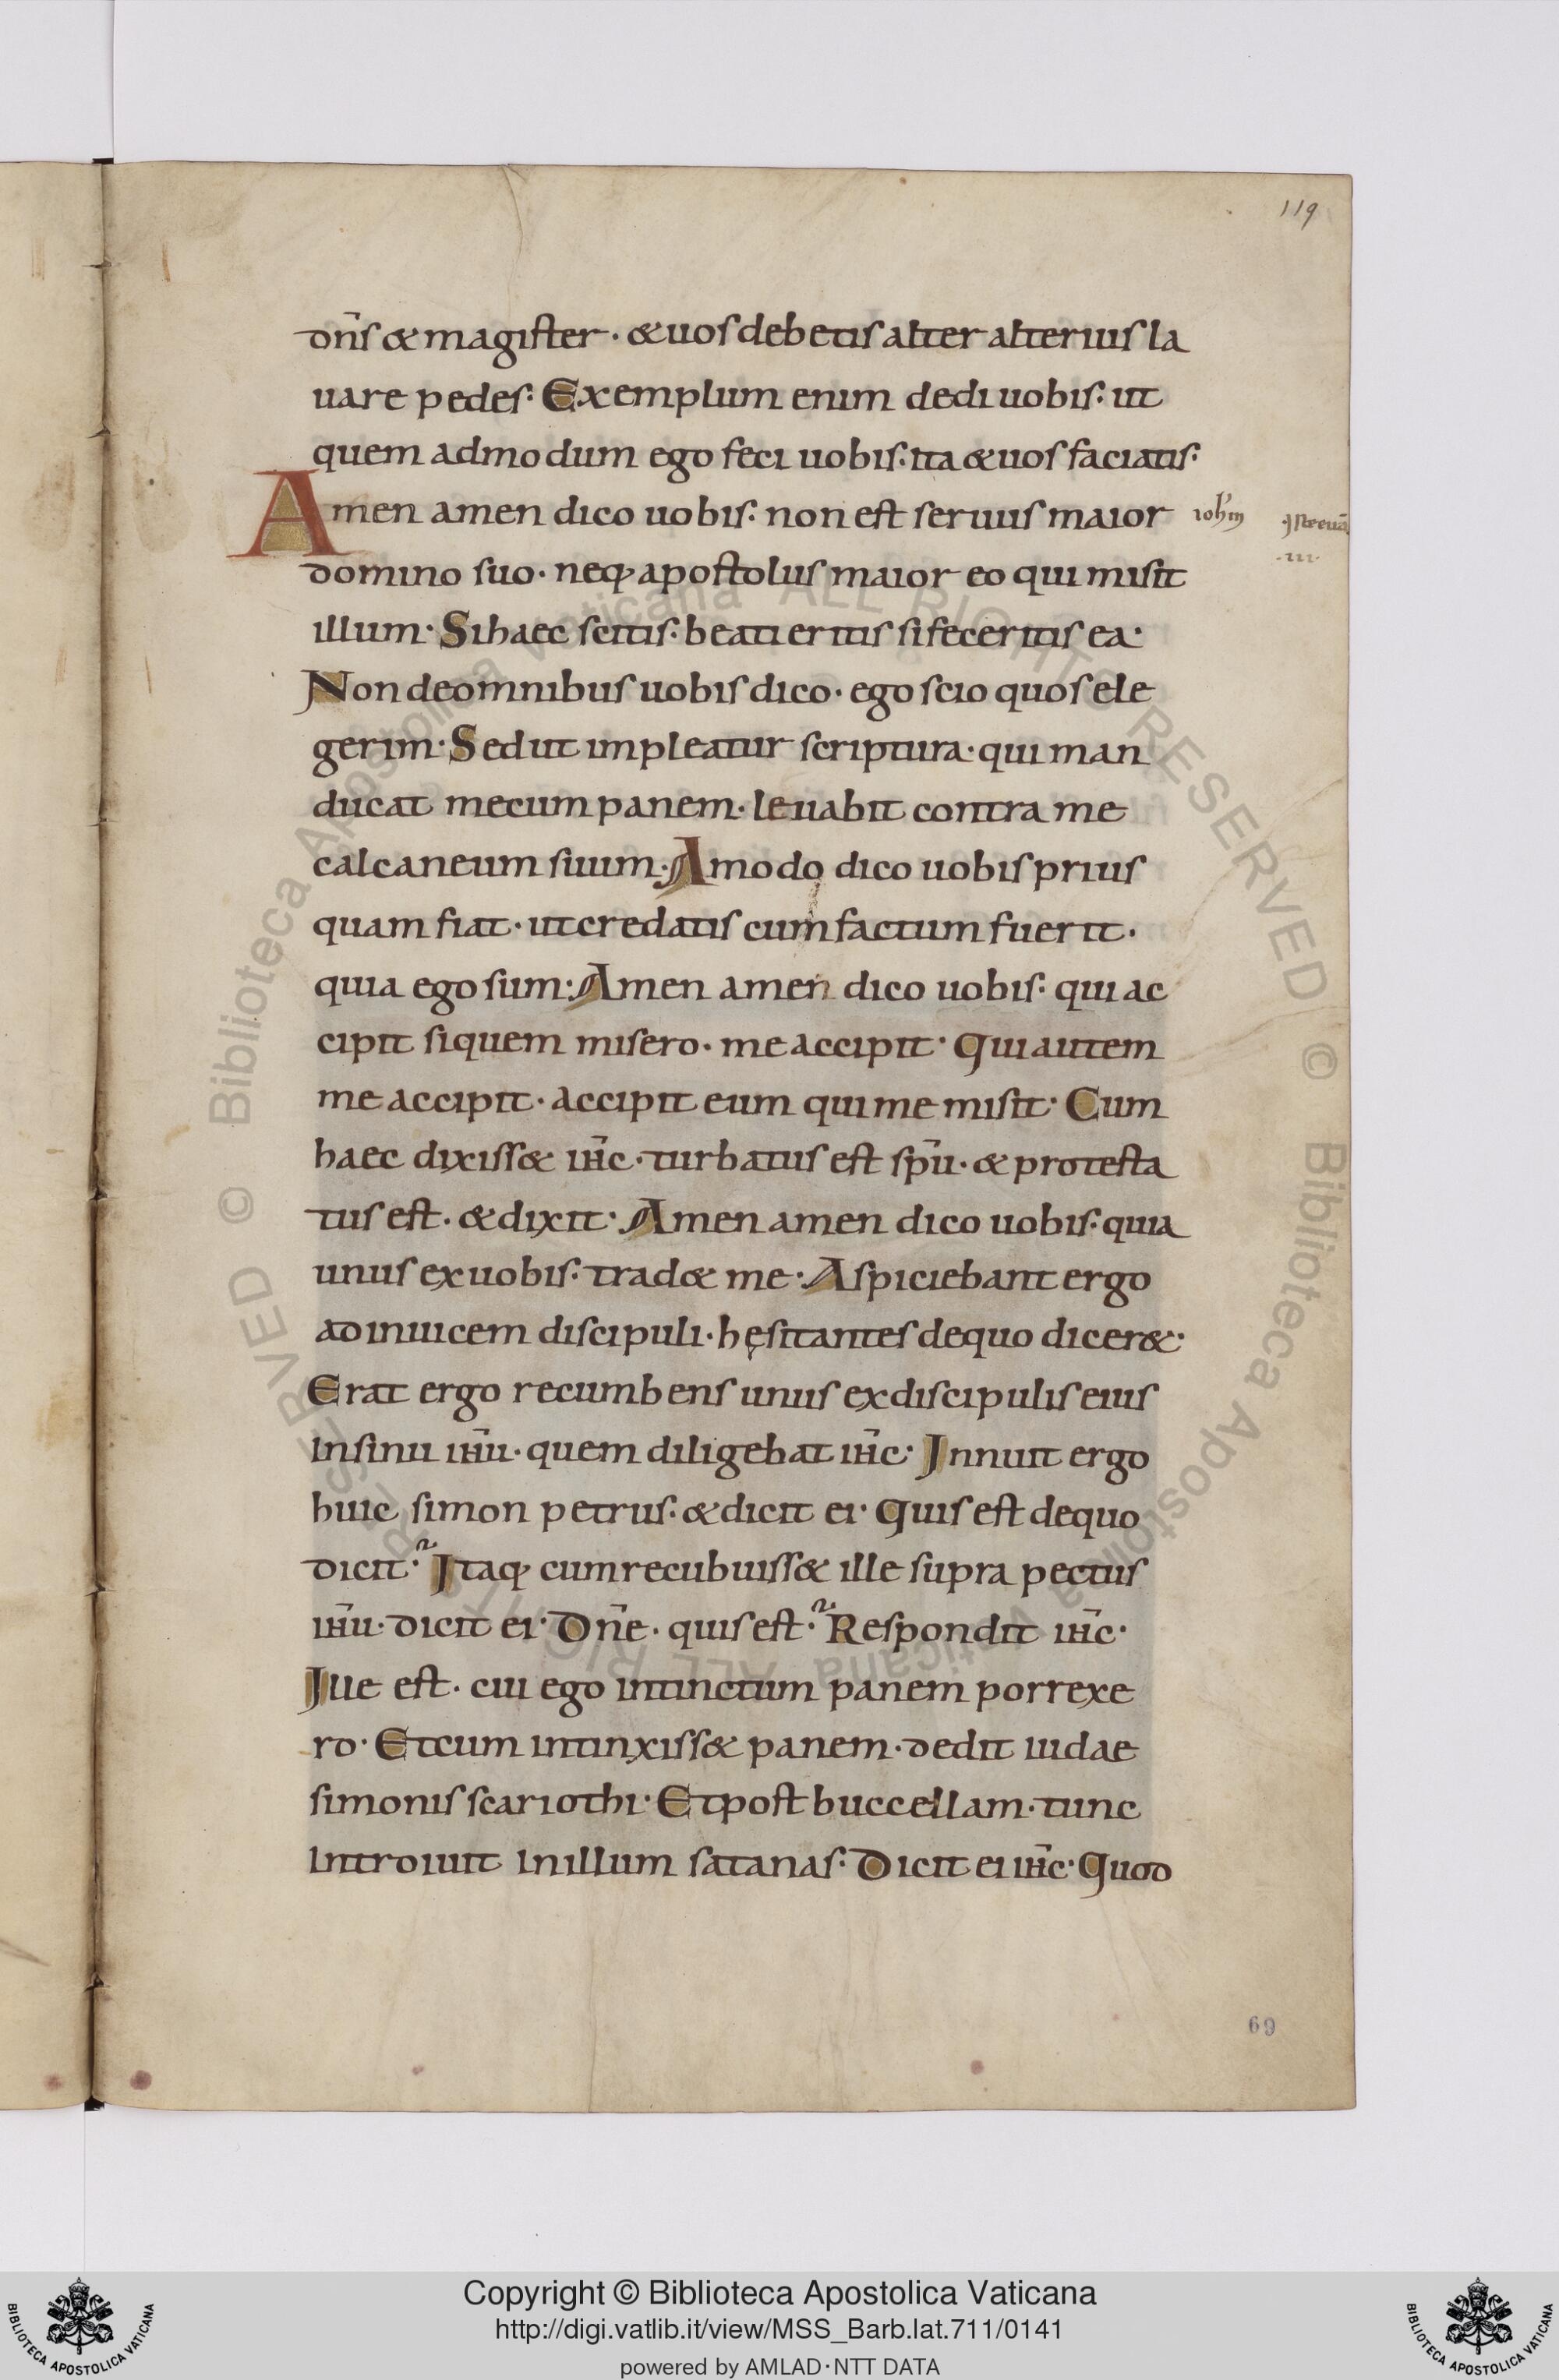 119
dn̄s & magister · & uos debetis alter alterius la
uare pedes: Exemplum enim dedi uobis: ut
quem admodum ego feci uobis: ita & uos faciatis:
Amen amen dico uobis: non est seruus maior
domino suo · neq; apostolus maior eo qui misit
illum · Si haec scitis: beati eritis si feceritis ea ·
Non de omnibus uobis dico · ego scio quos ele
gerim · Sed ut impleatur scriptura · qui man
ducat mecum panem · leuabit contra me
calcaneum suum · Amodo dico uobis prius
quam fiat · ut credatis cum factum fuerit ·
quia ego sum: Amen amen dico uobis: qui ac
cipit si quem misero · me accipit · Qui autem
me accipit · accipit eum qui me misit · Cum
haec dixiss& ih̄c · turbatus est sp̄u · & protesta
tus est · & dixit · Amen amen dico uobis: quia
unus ex uobis · trad& me · Aspiciebant ergo
ad inuicem discipuli · hęsitantes de quo dicer& ·
Erat ergo recumbens unus ex discipulis eius
in sinu ih̄u · quem diligebat ih̄c · Innuit ergo
huic simon petrus · & dicit ei · Quis est de quo
dicit? Itaq; cum recubuiss& ille supra pectus
ih̄u · dicit ei · Dn̄e · quis est? Respondit ih̄c ·
Ille est · cui ego intinctum panem porrexe
ro · Et cum intinxiss& panem · dedit iudae
simonis scariothi · Et post buccellam · tunc
introiuit in illum satanas · Dicit ei ih̄c · Quod
69
© Biblioteca Apostolica Vaticana ALL RIGHTS RESERVED © Biblioteca Apostolica Vaticana ALL RIGHTS RESERVED
Copyright © Biblioteca Apostolica Vaticana
http://digi.vatlib.it/view/MSS_Barb.lat.711/0141
powered by AMLAD·NTT DATA
BIBLIOTECA APOSTOLICA VATICANA
BIBLIOTECA APOSTOLICA VATICANA